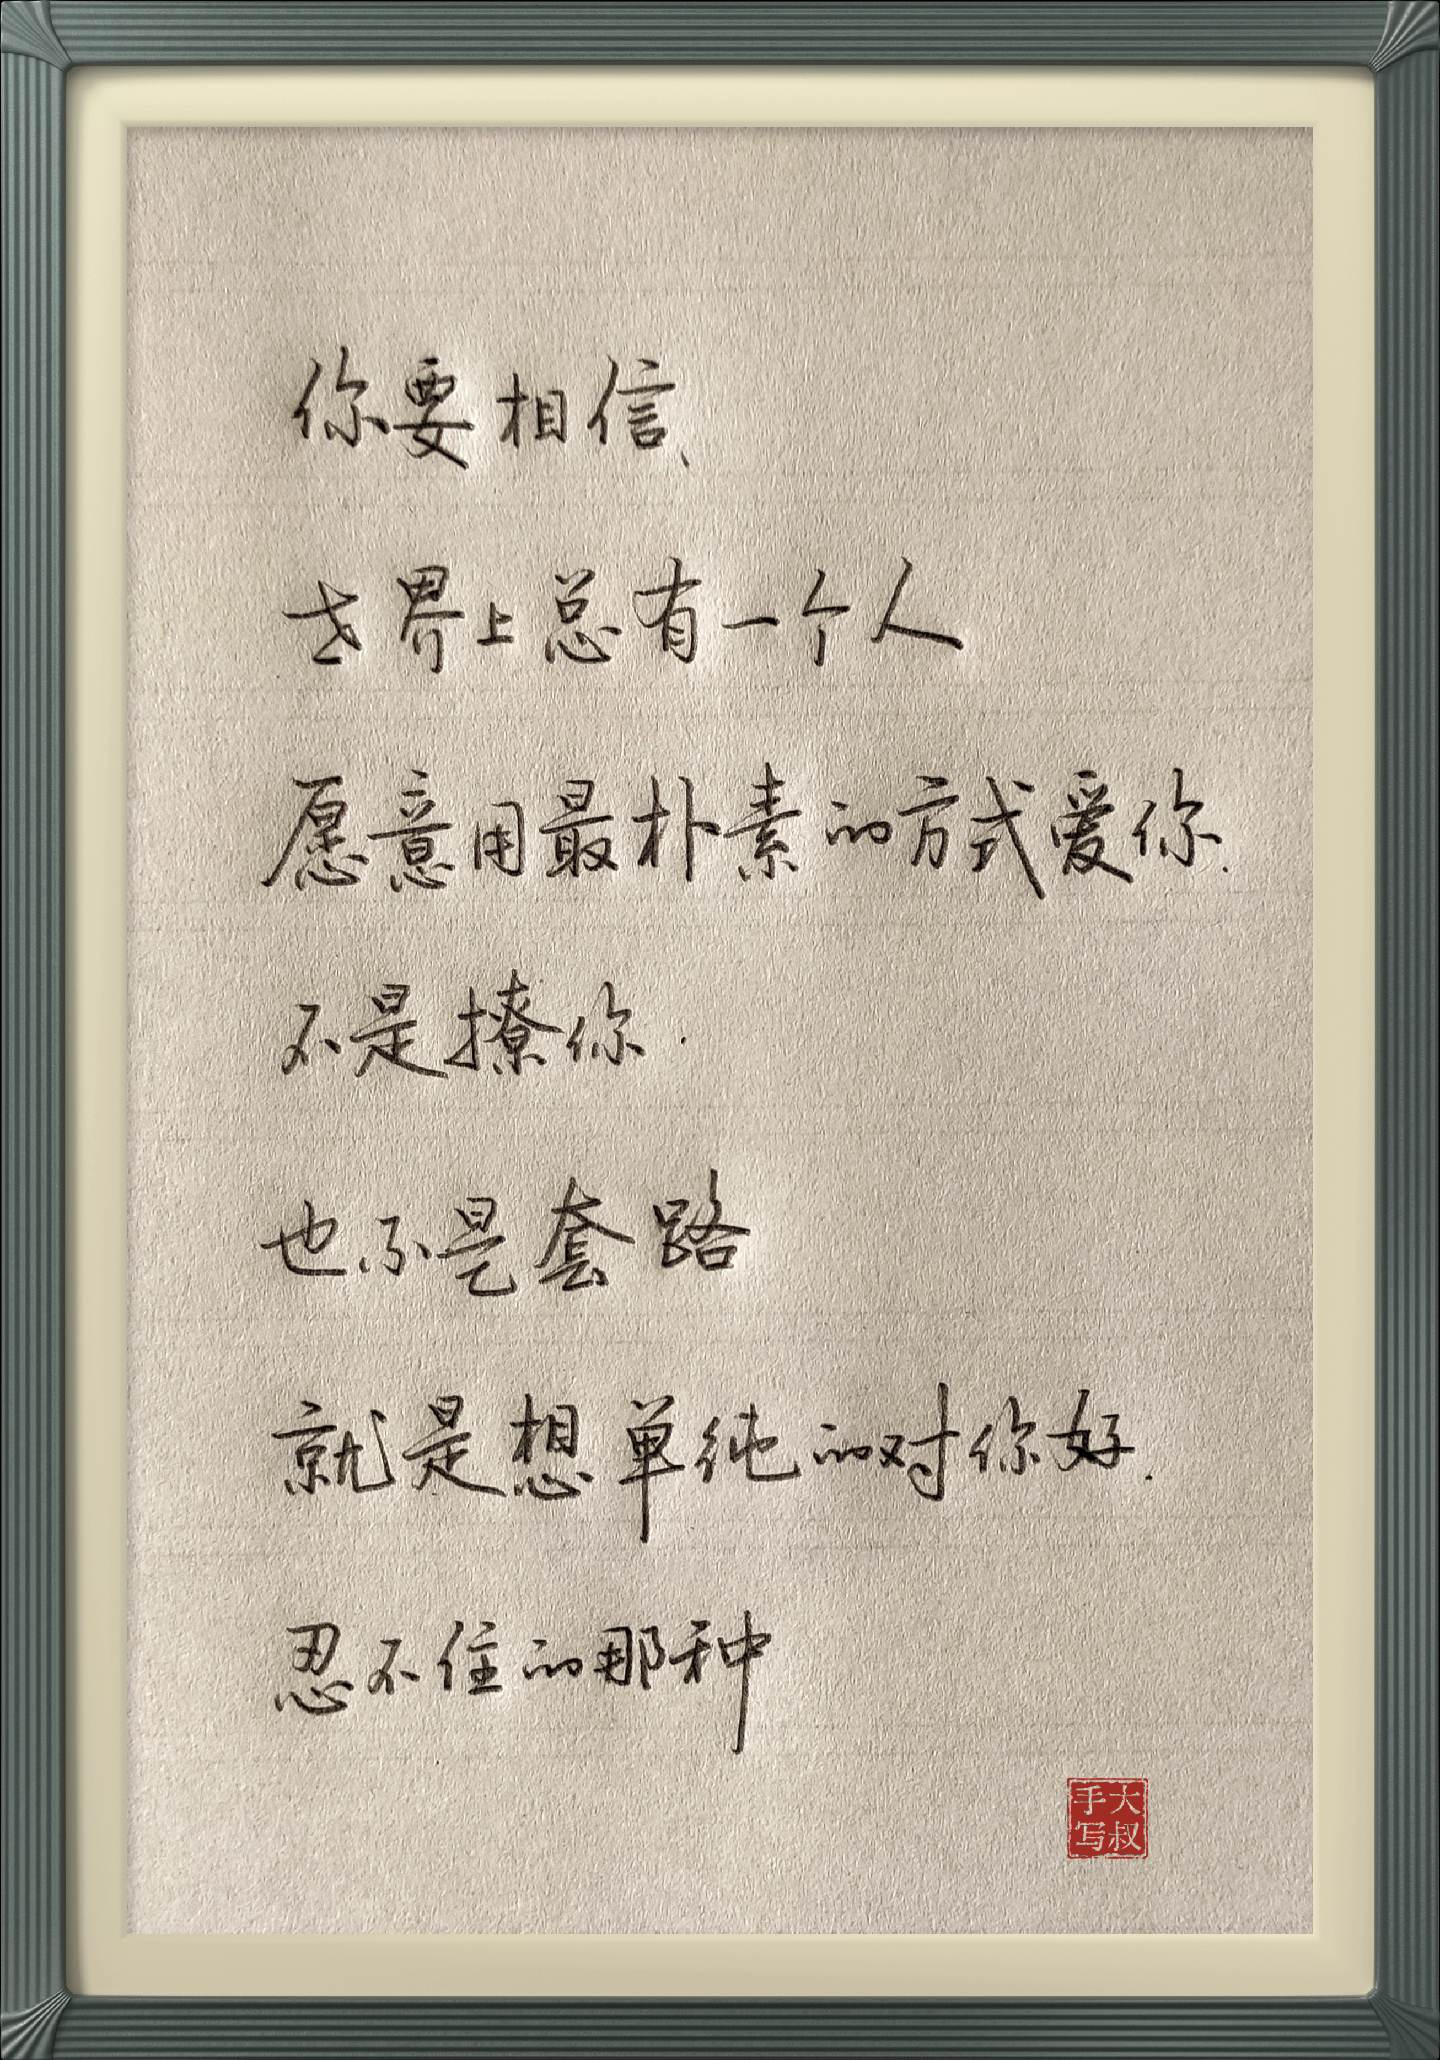 你要相信、
世界上总有一个人
愿意用最朴素的方式爱你.
不是撩你.
也不是套路
就是想单纯的对你好.
忍不住的那种
大叔
手写